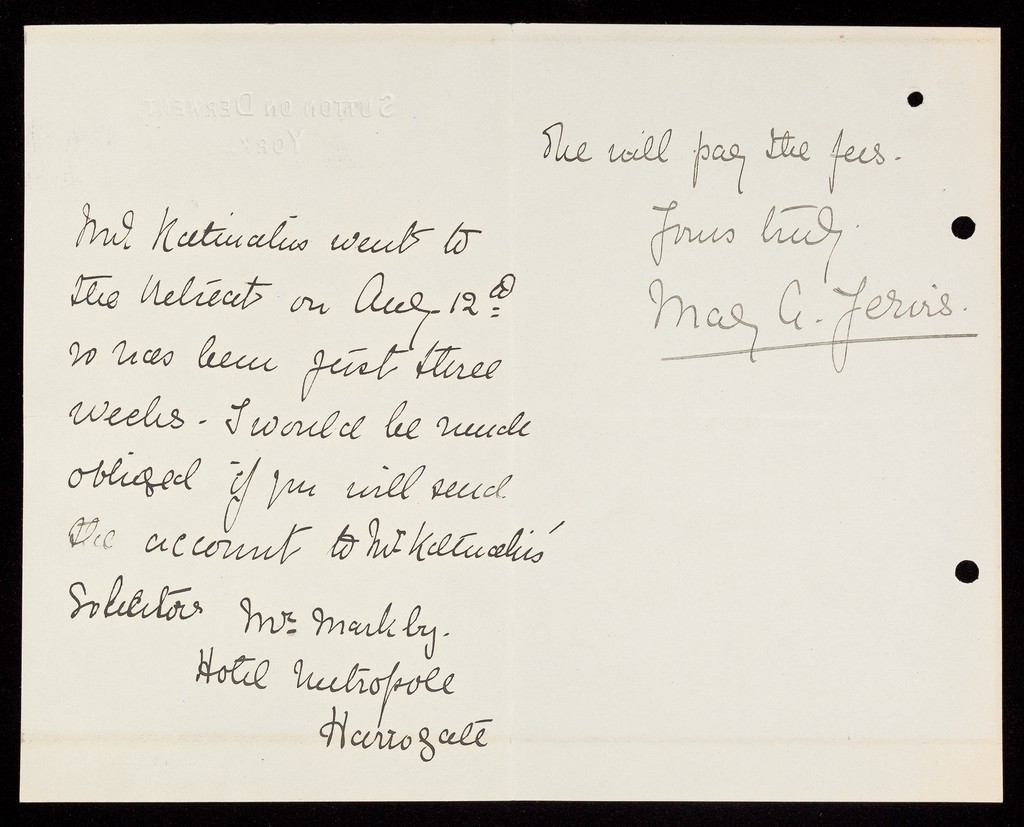 went to
the Retreat on Aug 12ᵈ
so has been just three
weeks - I would be much
obliged if you will send
the account to Mr
Solicitor Mr. Markby.
Hotel Metropole
Harrogate
She will pay the fees.
Yours truly
May A. Jervis.
SUTTON ON DERWENT
YORK.